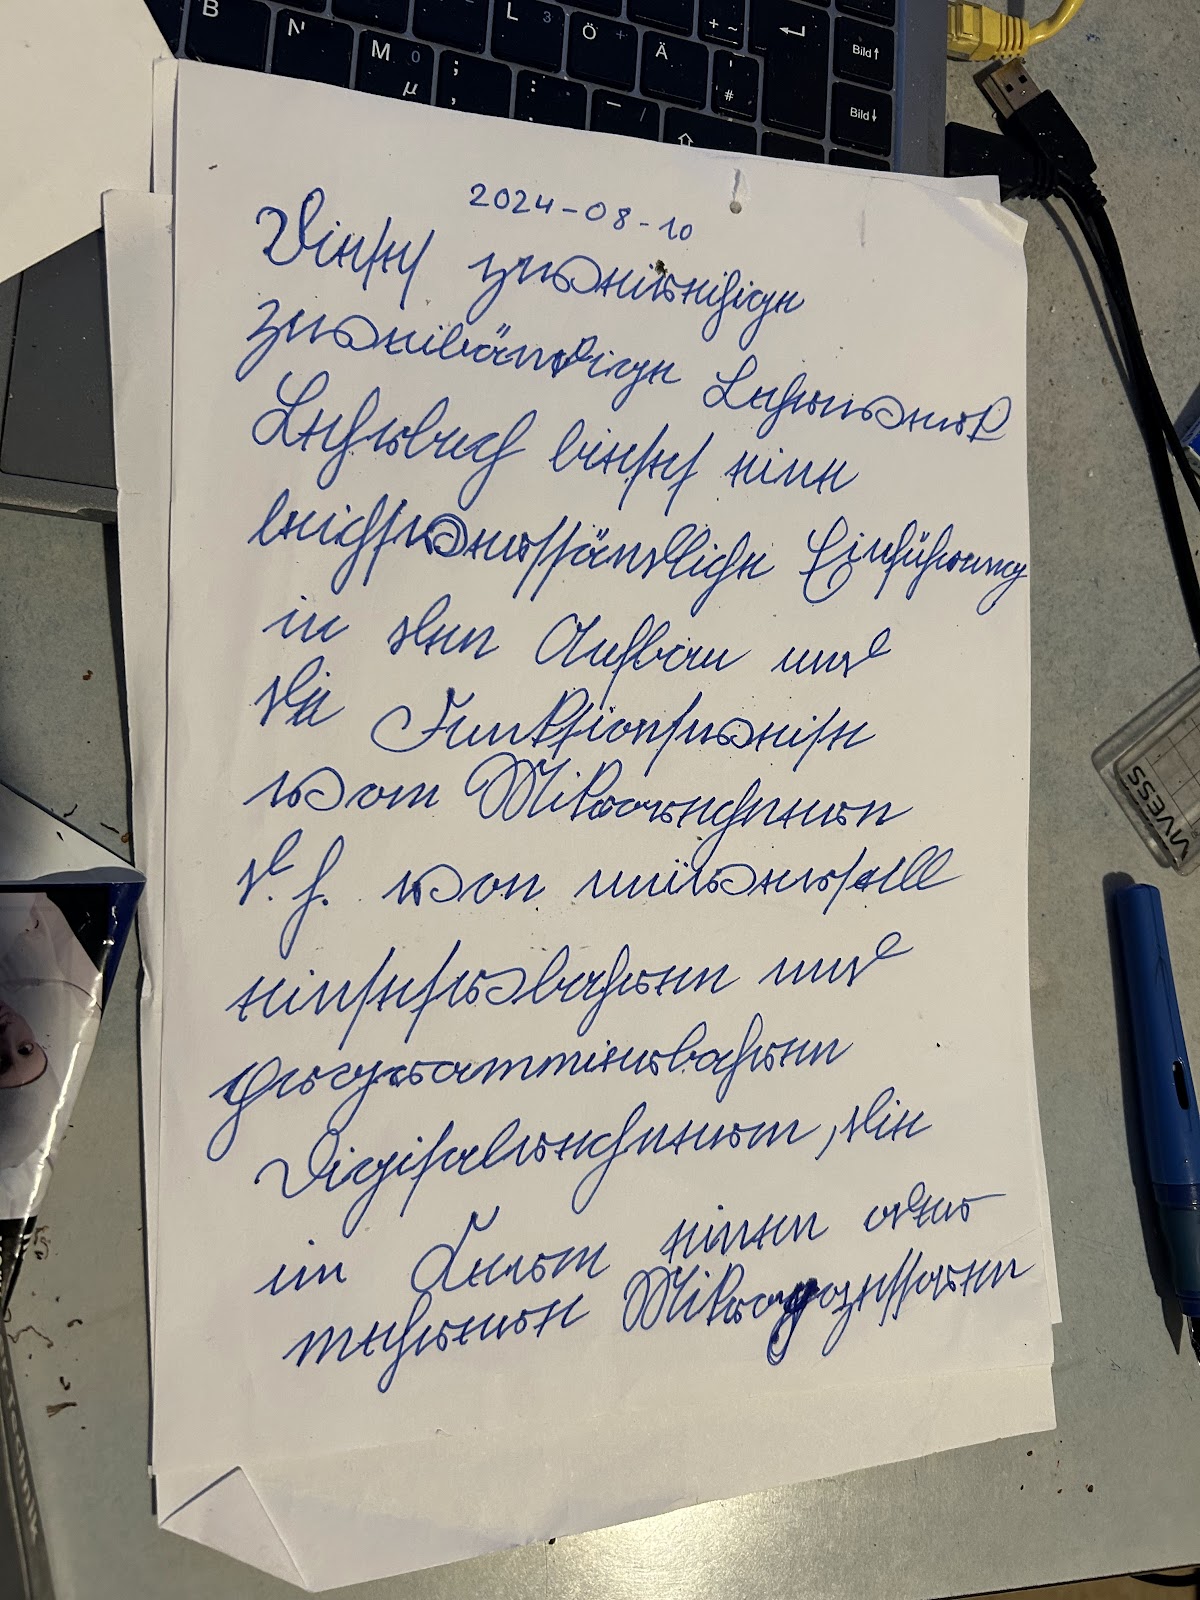 2024-08-10
Dieses
zweibändige Lehrwerk
Lehrbuch bietet eine
leichtverständliche Einführung
in den Aufbau und
die Funktionsweise
vom Mikrorechnern
d. h. von universell
einsetzbahren und
programmierbahren
Digitalrechnern, die
im Kern einen oder
mehrere Mikroprozessoren
B N M 0 µ ; , : . _ - L 3 Ö + Ä ' # + ~ Bild↑ Bild↓
MVESS
technik